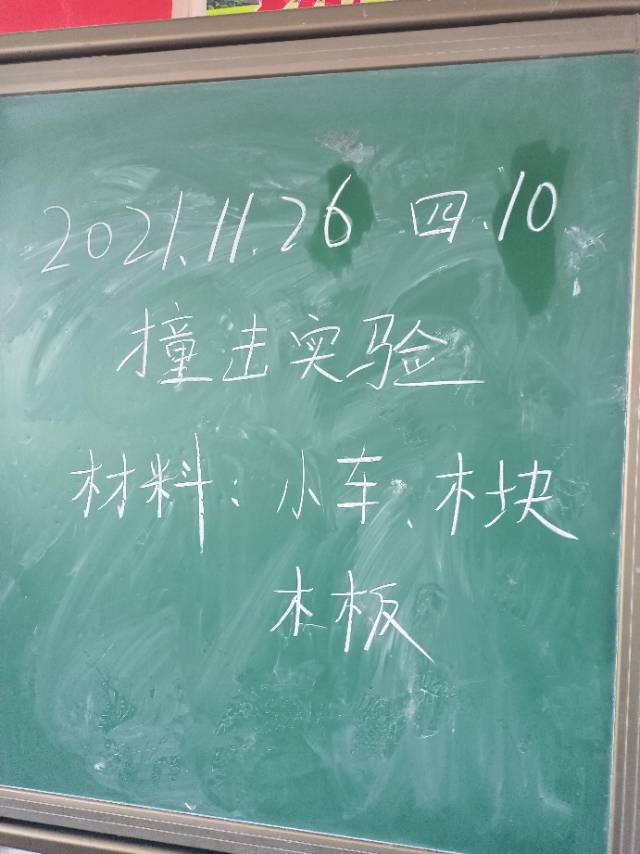 2021.11.26 四.10
撞击实验
材料：小车、木块
木板